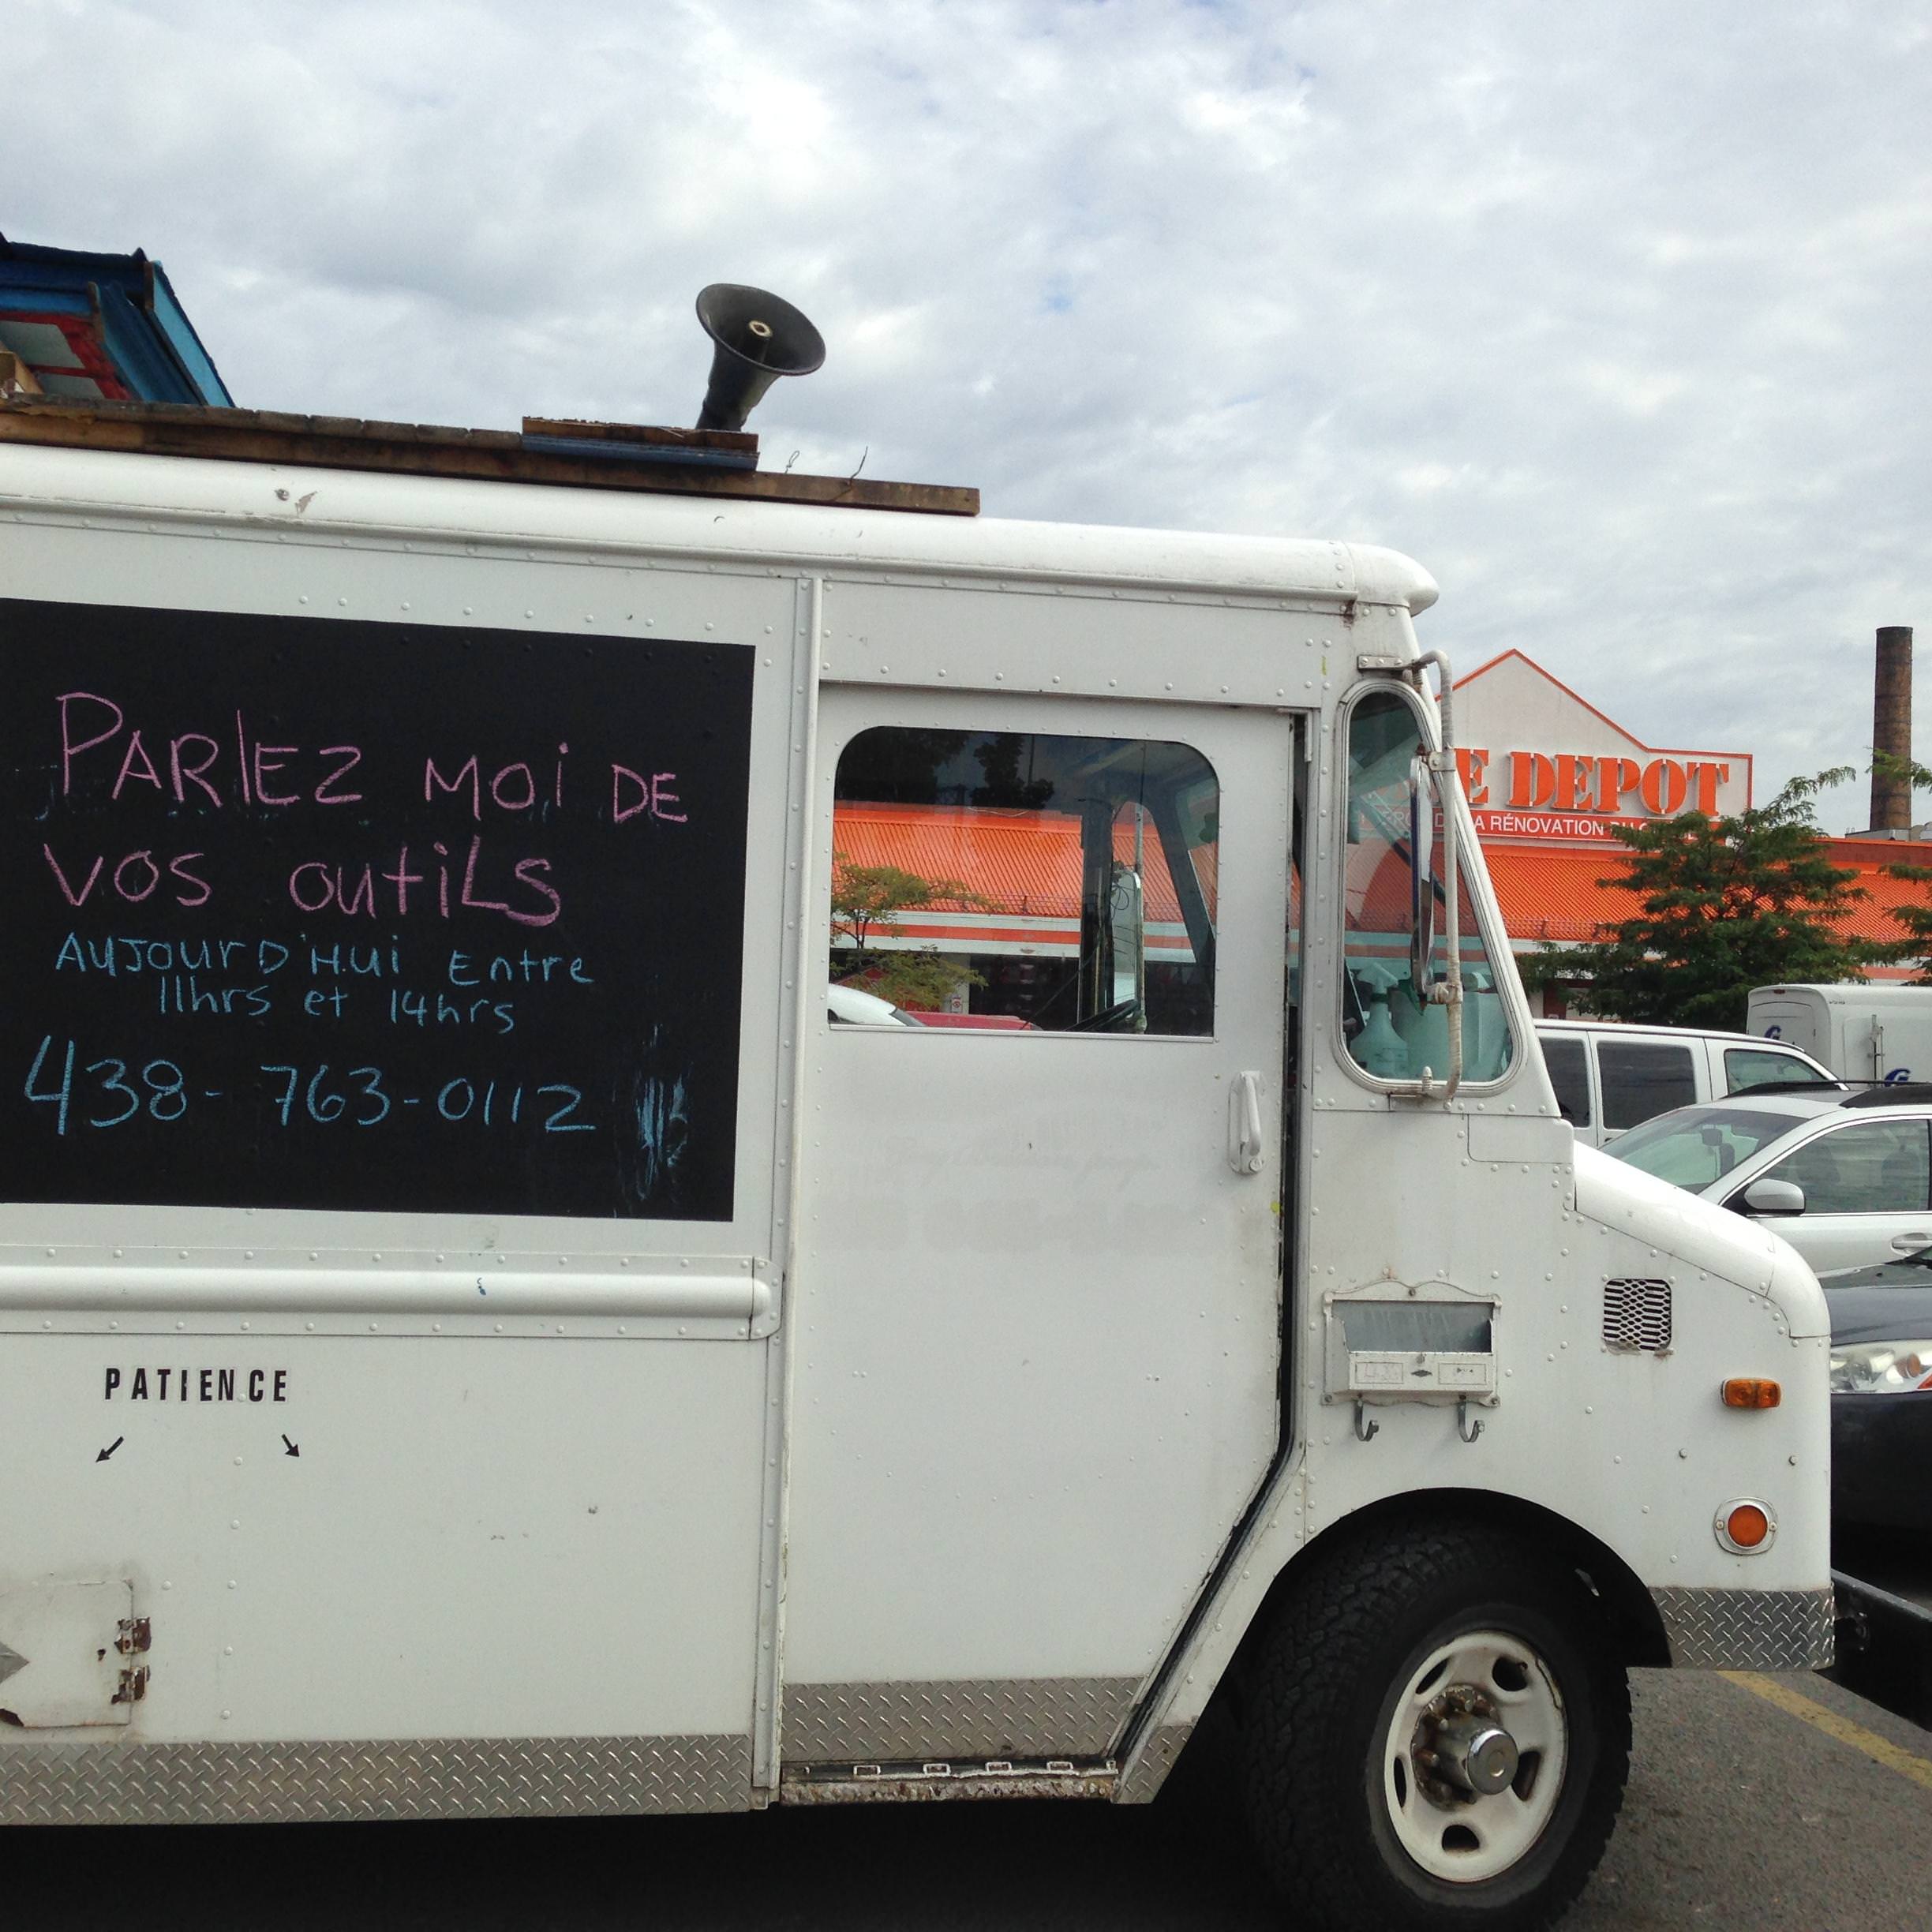 PARLEZ MOi DE
VOS OUtiLS
AUJOURD'HUi Entre
11hrs et 14hrs
438-763-0112
PATIENCE
DEPOT
LA RÉNOVATION DU